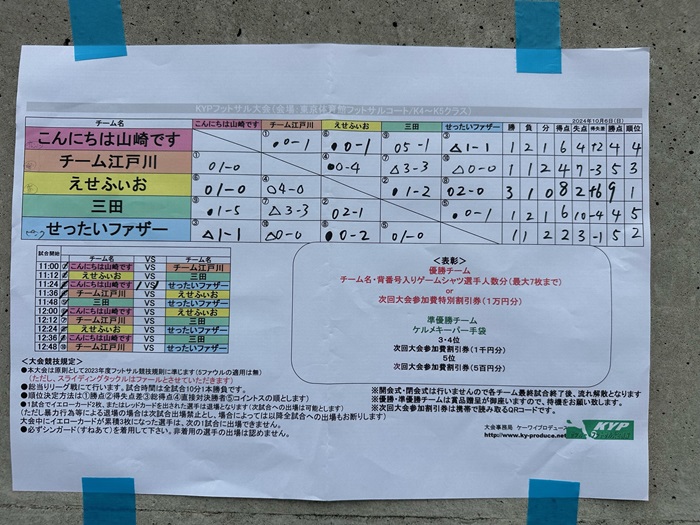 KYPフットサル大会(会場:東京体育館フットサルコート/K4～K5クラス)
2024年10月6日(日)
チーム名 こんにちは山崎です チーム江戸川 えせふぃお 三田 せったいファザー 勝 負 分 得点 失点 得失差 勝点 順位
こんにちは山崎です ① ●0-1 ⑥ ●0-1 ⑨ ○5-1 ③ △1-1 1 2 1 6 4 +2 4 4
チーム江戸川 ① ○1-0 ④ ●0-4 ⑦ △3-3 ⑩ △0-0 1 1 2 4 7 -3 5 3
えせふぃお ⑥ ○1-0 ④ ○4-0 ② ●1-2 ⑧ ○2-0 3 1 0 8 2 +6 9 1
三田 ⑨ ●1-5 ⑦ △3-3 ② ○2-1 ⑤ ●0-1 1 2 1 6 10 -4 4 5
せったいファザー ③ △1-1 ⑩ △0-0 ⑧ ●0-2 ⑤ ○1-0 1 1 2 2 3 -1 5 2
試合開始 チーム名 VS チーム名
11:00 ① こんにちは山崎です VS チーム江戸川
11:12 ② えせふぃお VS 三田
11:24 ③ こんにちは山崎です VS せったいファザー
11:36 ④ チーム江戸川 VS えせふぃお
11:48 ⑤ 三田 VS せったいファザー
12:00 ⑥ こんにちは山崎です VS えせふぃお
12:12 ⑦ チーム江戸川 VS 三田
12:24 ⑧ えせふぃお VS せったいファザー
12:36 ⑨ こんにちは山崎です VS 三田
12:48 ⑩ チーム江戸川 VS せったいファザー
＜表彰＞
優勝チーム
チーム名・背番号入りゲームシャツ選手人数分(最大7枚まで)
or
次回大会参加費特別割引券(1万円分)
準優勝チーム
ケルメキーパー手袋
3・4位
次回大会参加費割引券(1千円分)
5位
次回大会参加費割引券(5百円分)
＜大会競技規定＞
●本大会は原則として2023年度フットサル競技規則に準じます(5ファウルの適用は無)
(ただし、スライディングタックルはファールとさせていただきます)
●総当りリーグ戦にて行います。試合時間は全試合10分1本勝負です。
●順位決定方法は①勝点②得失点差③総得点④直接対決勝者⑤コイントスの順とします)
●1試合でイエローカード2枚、またはレッドカードを出された選手は退場となります(次試合への出場は可能とします)
(ただし暴力行為等による退場の場合は次試合出場禁止とし、場合によっては以降全試合への出場もお断りします)
大会中にイエローカードが累積3枚になった選手は、次の1試合に出場できません。
●必ずシンガード(すねあて)を着用して下さい。非着用の選手の出場は認めません。
※開会式・閉会式は行いませんので各チーム最終試合終了後、流れ解散となります
※優勝・準優勝チームは賞品贈呈が御座いますので、待機をお願い致します。
※次回大会参加費割引券は携帯で読み取るQRコードです。
大会事務局 ケーワイプロデュース
http://www.ky-produce.net
KYP